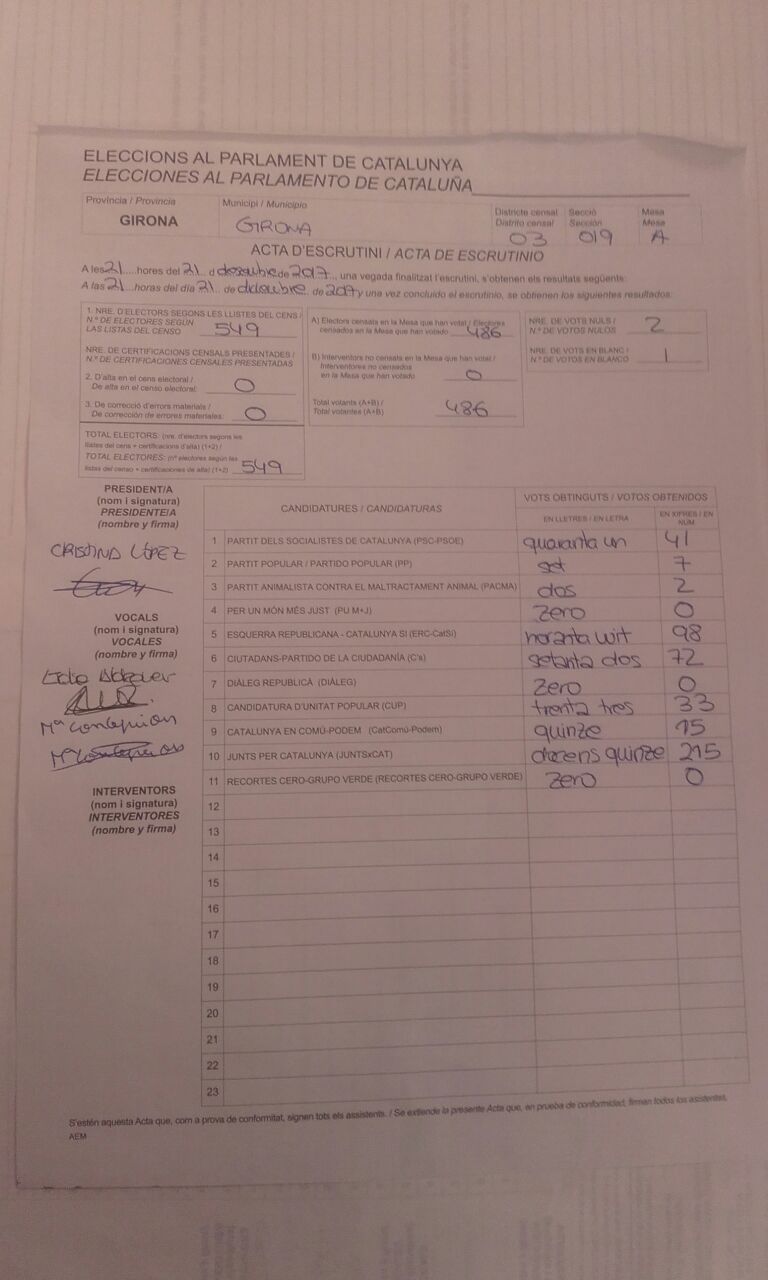 ELECCIONS AL PARLAMENT DE CATALUNYA
ELECCIONES AL PARLAMENTO DE CATALUÑA
Província / Provincia
GIRONA
Municipi / Municipio
GIRONA
Districte censal
Distrito censal
03
Secció
Sección
019
Mesa
Mesa
A
ACTA D'ESCRUTINI / ACTA DE ESCRUTINIO
A les 21 hores del 21 d desembre de 2017, una vegada finalitzat l'escrutini, s'obtenen els resultats següents:
A las 21 horas del día 21 de diciembre de 2017 y una vez concluido el escrutinio, se obtienen los siguientes resultados:
1. NRE. D'ELECTORS SEGONS LES LLISTES DEL CENS /
N.º DE ELECTORES SEGÚN
LAS LISTAS DEL CENSO 549
NRE. DE CERTIFICACIONS CENSALS PRESENTADES /
N.º DE CERTIFICACIONES CENSALES PRESENTADAS
2. D'alta en el cens electoral /
De alta en el censo electoral: 0
3. De correcció d'errors materials /
De corrección de errores materiales: 0
TOTAL ELECTORS: (nre. d'electors segons les
llistes del cens + certificacions d'alta) (1+2) /
TOTAL ELECTORES: (nº electores según las
listas del censo + certificaciones de alta) (1+2) 549
A) Electors censats en la Mesa que han votat / Electores
censados en la Mesa que han votado 486
B) Interventors no censats en la Mesa que han votat /
Interventores no censados
en la Mesa que han votado 0
Total votants (A+B) /
Total votantes (A+B) 486
NRE. DE VOTS NULS /
N.º DE VOTOS NULOS 2
NRE. DE VOTS EN BLANC /
N.º DE VOTOS EN BLANCO 1
PRESIDENT/A
(nom i signatura)
PRESIDENTE/A
(nombre y firma)
CRISTINA LÓPEZ
VOCALS
(nom i signatura)
VOCALES
(nombre y firma)
Mª Concepción
Mª Concepción
INTERVENTORS
(nom i signatura)
INTERVENTORES
(nombre y firma)
CANDIDATURES / CANDIDATURAS
VOTS OBTINGUTS / VOTOS OBTENIDOS
EN LLETRES / EN LETRA
EN XIFRES / EN NÚM.
1 PARTIT DELS SOCIALISTES DE CATALUNYA (PSC-PSOE) quaranta un 41
2 PARTIT POPULAR / PARTIDO POPULAR (PP) set 7
3 PARTIT ANIMALISTA CONTRA EL MALTRACTAMENT ANIMAL (PACMA) dos 2
4 PER UN MÓN MÉS JUST (PU M+J) zero 0
5 ESQUERRA REPUBLICANA - CATALUNYA SÍ (ERC-CatSí) noranta vuit 98
6 CIUTADANS-PARTIDO DE LA CIUDADANÍA (C's) setanta dos 72
7 DIÀLEG REPUBLICÀ (DIÀLEG) zero 0
8 CANDIDATURA D'UNITAT POPULAR (CUP) trenta tres 33
9 CATALUNYA EN COMÚ-PODEM (CatComú-Podem) quinze 15
10 JUNTS PER CATALUNYA (JUNTSxCAT) docens quinze 215
11 RECORTES CERO-GRUPO VERDE (RECORTES CERO-GRUPO VERDE) zero 0
12
13
14
15
16
17
18
19
20
21
22
23
S'estén aquesta Acta que, com a prova de conformitat, signen tots els assistents. / Se extiende la presente Acta que, en prueba de conformidad, firman todos los asistentes.
AEM